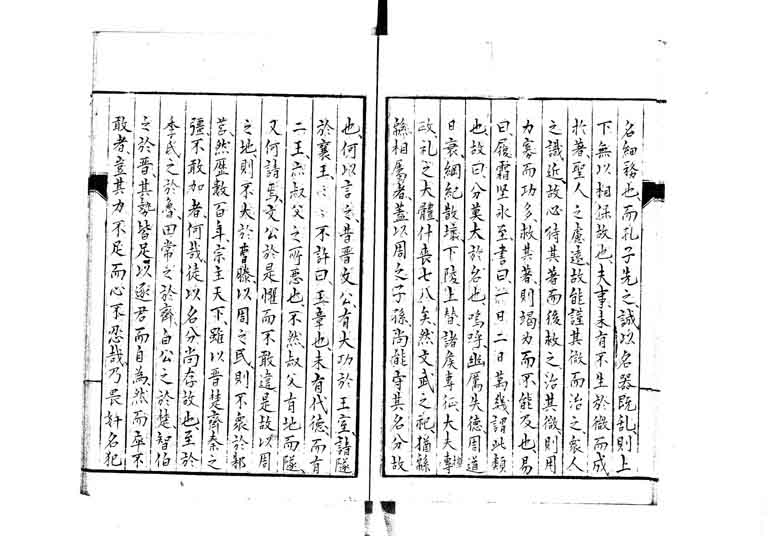 名細務也而孔子先之誠以名器既乱則上
下無以相保故也夫事未有不生於微而成
於著聖人之慮遠故能謹其微而治之衆人
之識近故心待其著而後救之治其微則用
力寡而功多救其著則竭力而不能及也易
曰履霜堅氷至書曰一日二日萬幾謂此類
也故曰分莫大於名也嗚呼幽厲失德周道
日衰綱紀散壞下陵上替諸侯專征大夫專
政礼之大體什喪七八矣然文武之祀猶緜
緜相屬者蓋以周之子孫尚能守其名分故
也何以言之昔晋文公有大功於王室請隧
於襄王々々不許曰王章也未有代德而有
二王亦叔父之所惡也不然叔父有地而隧
又何請焉文公於是懼而不敢違是故以周
之地則不大於曹滕以周之民則不衆於邾
莒然歴数百年宗主天下雖以晋楚齊秦之
彊不敢加者何哉徒以名分尚存故也至於
季氏之於魯田常之於齊白公之於楚智伯
之於晋其勢皆足以逐君而自為然而卒不
敢者豈其力不足而心不忍哉乃畏奸名犯